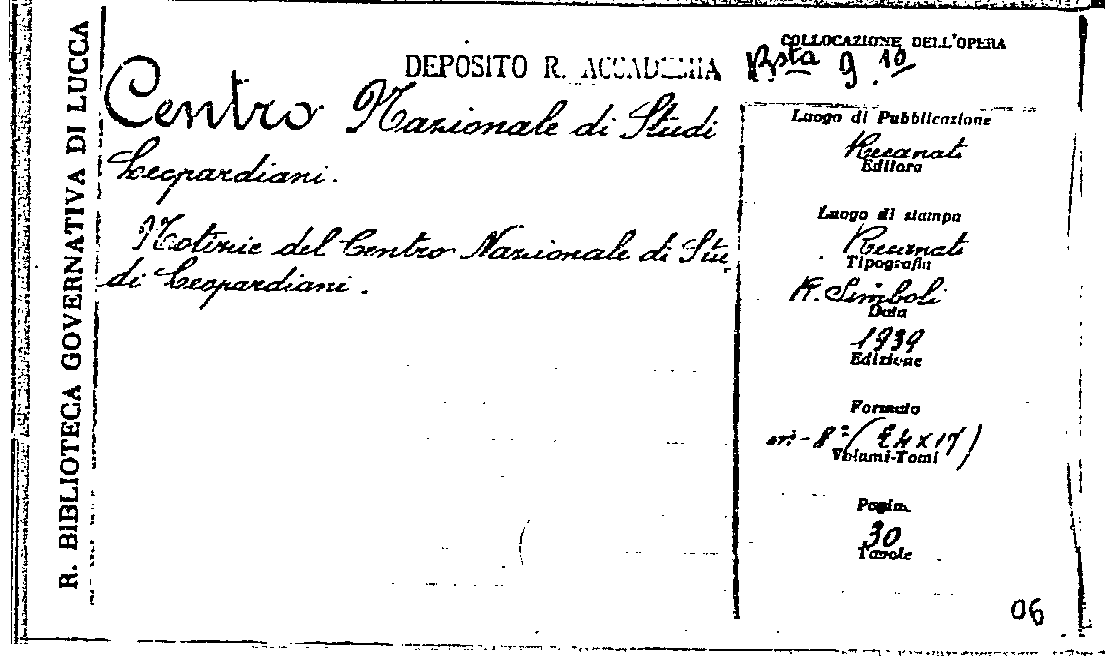 R. BIBLIOTECA GOVERNATIVA DI LUCCA
DEPOSITO R. ACCADEMIA
COLLOCAZIONE DELL'OPERA
Bsta 9.10
Centro Nazionale di Studi
Leopardiani.
Notizie del Centro Nazionale di Stu-
di Leopardiani.
Luogo di Pubblicazione
Recanati
Editore
Luogo di stampa
Recanati
Tipografia
R. Simboli
Data
1939
Edizione
Formato
in-8º (24x17)
Volumi-Tomi
Pagine
30
Tavole
06